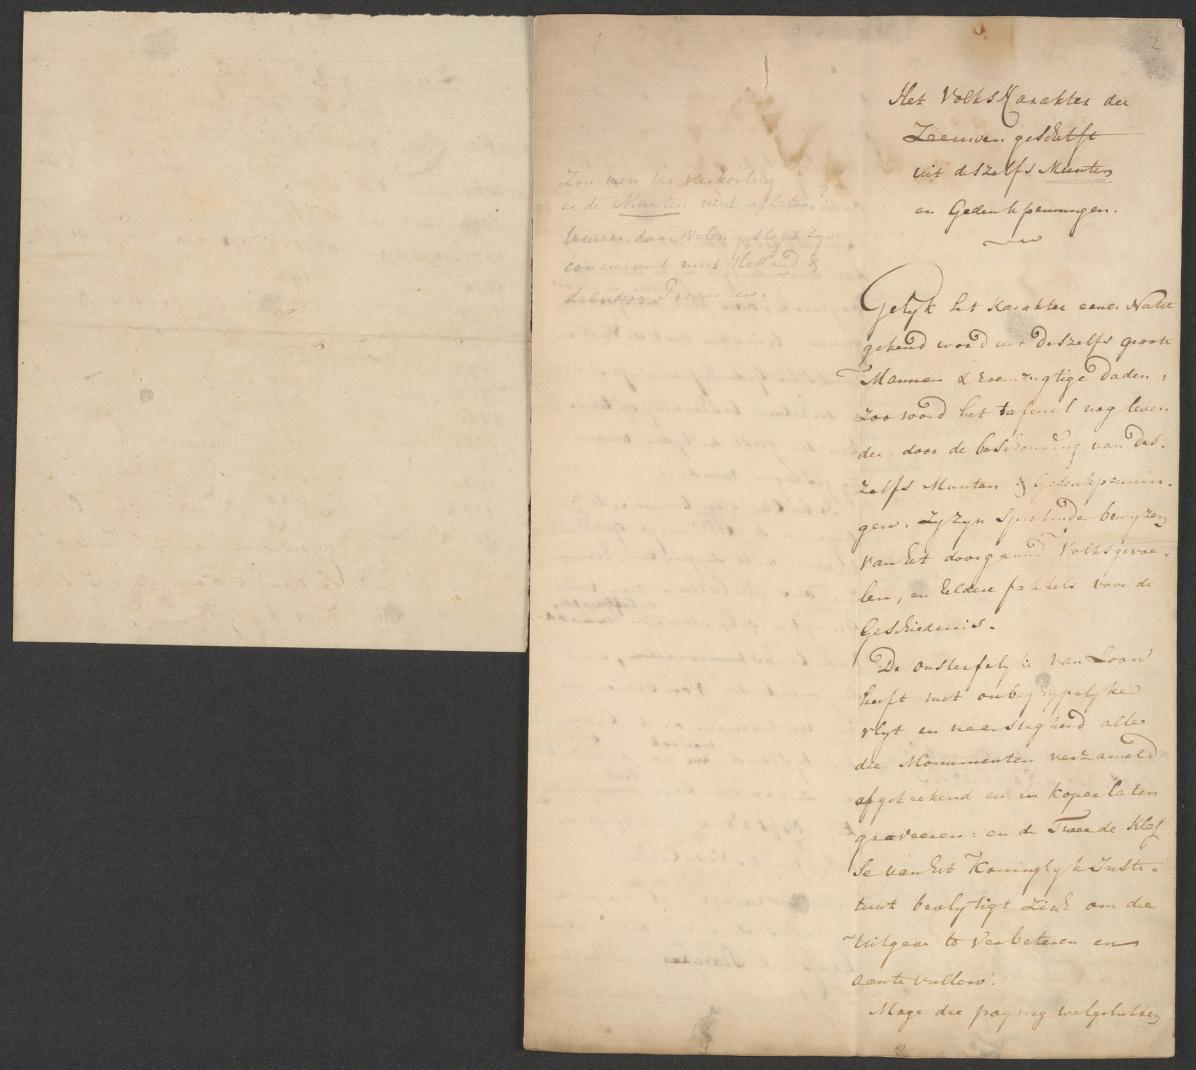 2
Het VolksKarakter der
Zeeuwen geschetst
uit deszelfs Munten
en Gedenkpenningen.
Zou men ter verkorting
er de Munten niet aflaten?
daar velen geslagen zyn
concurrent met Holland &
de andere Provincien.
Gelyk het Karakter eener Natie
gekend word uit deszelfs groote
Mannen & roemrugtige Daden,
zoo word het tafereel nog leven
der, door de beschouwing van des-
zelfs Munten & Gedenkpennin-
gen. Zy zyn sprekende bewyzen
van het doorgaand Volksgevoe-
len, en heldere fakkels voor de
Geschiedenis.
De onsterfelyke van Loon
heeft met onbegrypelyke
vlyt en naerstigheid alle
die Monumenten verzameld
afgeteekend en in koper laten
graveeren: en de Tweede Klas
se van het Koninglyk Insti-
tuut bevlytigt zich om die
Uitgave te Verbeteren en
aantevullen.
Moge die poging welgelukken